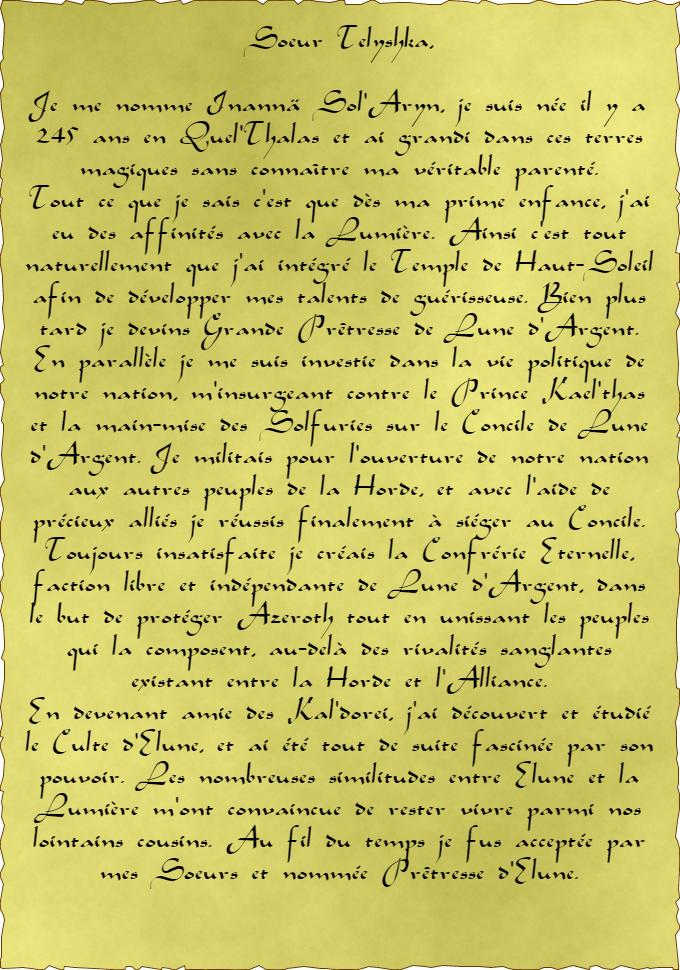 Soeur Telyshka,
Je me nomme Inannä Sol'Aryn, je suis née il y a
245 ans en Quel'Thalas et ai grandi dans ces terres
magiques sans connaître ma véritable parenté.
Tout ce que je sais c'est que dès ma prime enfance, j'ai
eu des affinités avec la Lumière. Ainsi c'est tout
naturellement que j'ai intégré le Temple de Haut-Soleil
afin de développer mes talents de guérisseuse. Bien plus
tard je devins Grande Prêtresse de Lune d'Argent.
En parallèle je me suis investie dans la vie politique de
notre nation, m'insurgeant contre le Prince Kael'thas
et la main-mise des Solfuries sur le Concile de Lune
d'Argent. Je militais pour l'ouverture de notre nation
aux autres peuples de la Horde, et avec l'aide de
précieux alliés je réussis finalement à siéger au Concile.
Toujours insatisfaite je créais la Confrérie Eternelle,
faction libre et indépendante de Lune d'Argent, dans
le but de protéger Azeroth tout en unissant les peuples
qui la composent, au-delà des rivalités sanglantes
existant entre la Horde et l'Alliance.
En devenant amie des Kal'dorei, j'ai découvert et étudié
le Culte d'Elune, et ai été tout de suite fascinée par son
pouvoir. Les nombreuses similitudes entre Elune et la
Lumière m'ont convaincue de rester vivre parmi nos
lointains cousins. Au fil du temps je fus acceptée par
mes Soeurs et nommée Prêtresse d'Elune.